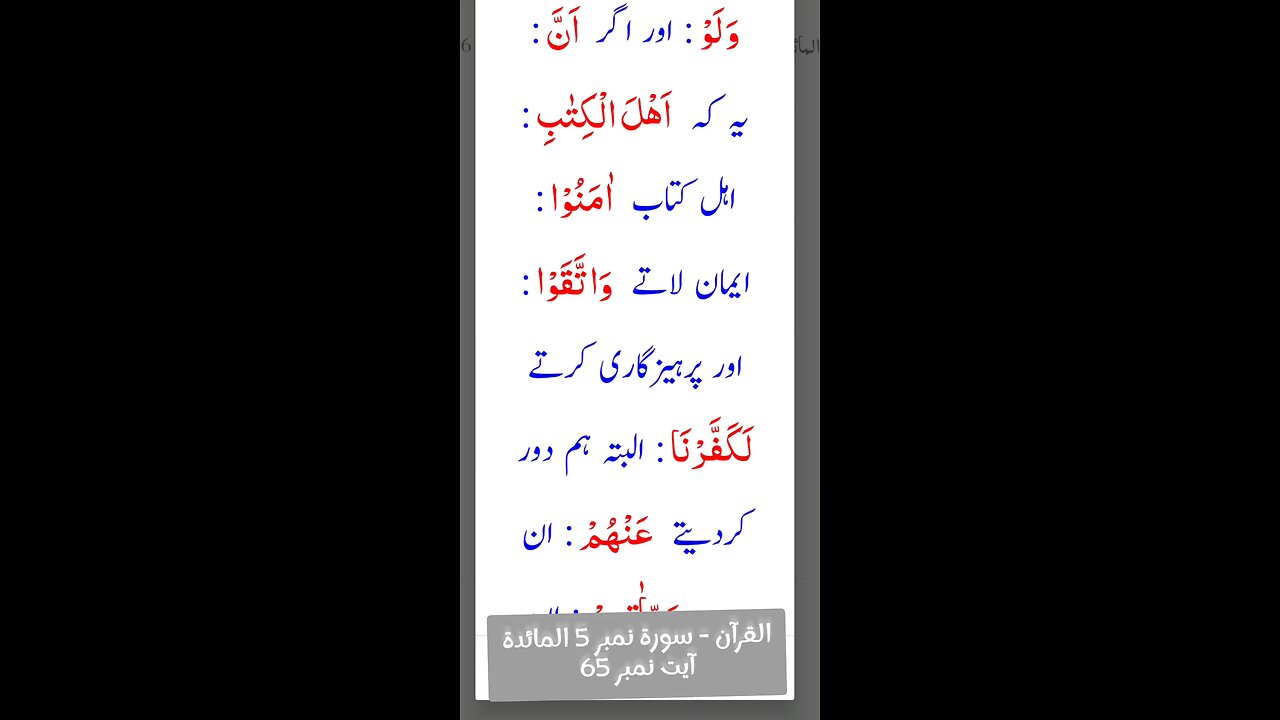 وَلَوْ : اور اگر اَنَّ :
یہ کہ اَهْلَ الْكِتٰبِ :
اہل کتاب اٰمَنُوْا :
ایمان لاتے وَاتَّقَوْا :
اور پرہیزگاری کرتے
لَكَفَّرْنَا : البتہ ہم دور
کردیتے عَنْهُمْ : ان
القرآن - سورۃ نمبر 5 المائدة
آیت نمبر 65